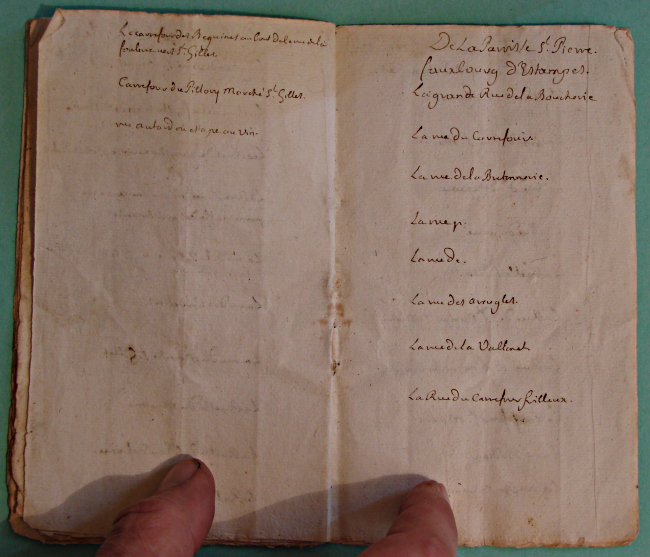 Le carrefour des Beguines au Cont de la rue de la
foulerie vers St. Gilles
Carrefour du Pillory Marché St. Gilles.
rue au vin.
De La Paroisse St. Pierre.
fauxbourg d'Estampes.
La grande Rue de la Boucherie
La rue du Carrefour
La rue de la Butonnerie.
La rue p.
La rue de.
La rue des avugles.
La rue de la Vallenet
La Rue du Carrefour filleux.